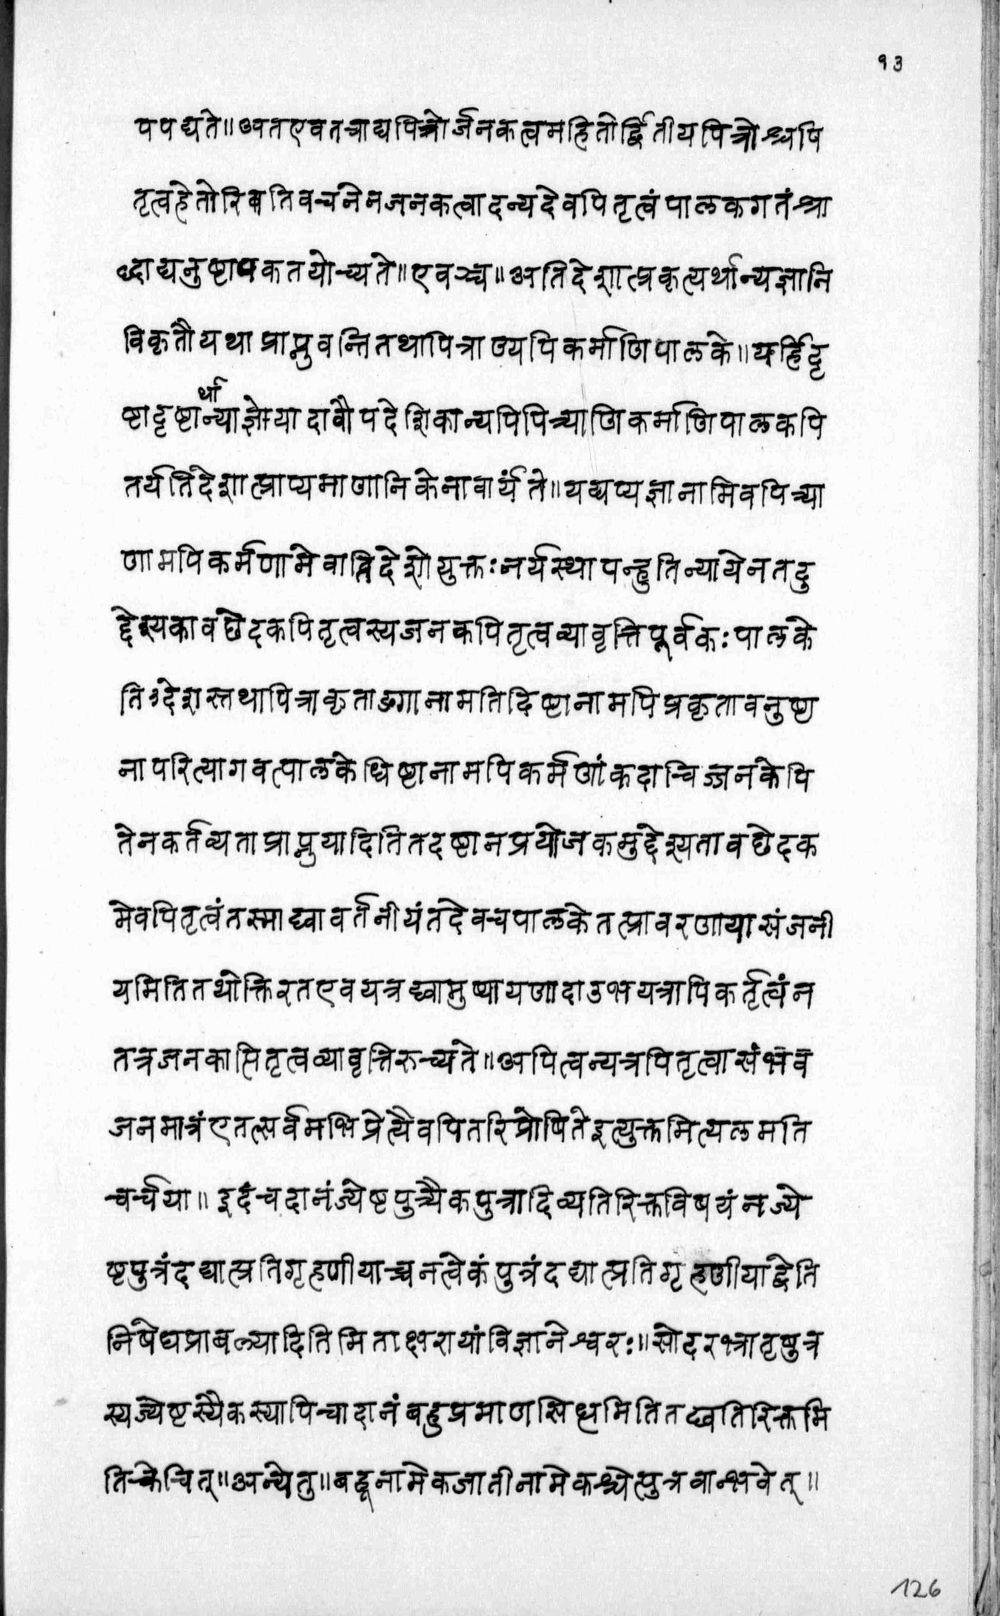 १३
पपद्यते॥अतएवतत्राद्यपित्रोर्जनकत्वमहितोर्द्वितीयपित्रोश्चपि
तृत्वहेतोरिवतिवचनेनजनकत्वादन्यदेवपितृत्वंपालकगतंश्रा
द्धाद्यनुष्ठापकतयोच्यते॥एवञ्च॥अतिदेशात्प्रकृत्यर्थान्यज्ञानि
विकृतौयथाप्राप्नुवन्तितथापित्राण्यपिकर्माणिपालके॥यर्हिदृ
ष्टादृष्टार्थान्याज्ञेयादावौपदेशिकान्यपिपित्र्याणिकर्माणिपालकपि
तर्यतिदेशात्प्राप्यमाणानिकेनावार्यते॥यद्यप्यज्ञानामिवपित्र्या
णामपिकर्मणामेवातिदेशोयुक्तःनर्यस्थापन्हुतिन्यायेनतदु
द्देश्यकावछेदकपितृत्वस्यजनकपितृत्वव्यावृत्तिपूर्वकःपालके
तिऽदेशस्तथापित्राकृताङ्गानामतिदिष्टानामपिप्रकृतावनुष्ठा
नापरित्यागवत्पालकेधिष्टानामपिकर्मणांकदाचिज्जनकेपि
तेनकर्तव्यताप्राप्नुयादितितदष्ठानप्रयोजकमुद्देश्यतावछेदक
मेवपितृत्वंतस्माद्व्यावर्तनीयंतदेवचपालकेतत्प्रावरणायासंजनी
यमितितथोक्तिरतएवयत्रद्व्यामुष्यायणादाऽभयत्रापिकर्तृत्वंन
तत्रजनकात्पितृत्वव्यावृत्तिरुच्यते॥अपित्वन्यत्रपितृत्वासंभव
जनमात्रंएतत्सर्वमभिप्रेत्यैवपितरिप्रोषितेइत्युक्तमित्यलमति
चर्चया॥इदंचदानंज्येष्टपुत्र्यैकपुत्रादिव्यतिरिक्तविषयंनज्ये
ष्टपुत्रंदद्यात्प्रतिगृहणीयाच्चनत्वेकंपुत्रंदद्यात्प्रतिगृहणीयाद्वेति
निषेधप्राबल्यादितिमिताक्षरायांविज्ञानेश्वरः॥सोदरभ्रातृपुत्र
स्यज्येष्टस्यैकस्यापिचादानंबहुप्रमाणसिध्दमितितद्व्यतिरिक्तमि
तिकेचित्॥अन्येतु॥बहूनामेकजातीनामेकश्चेत्पुत्रवान्भवेत्॥
126